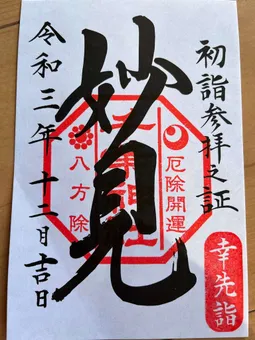 初詣参拝之証
妙見
厄除開運
八方除
令和三年十二月吉日
幸先詣